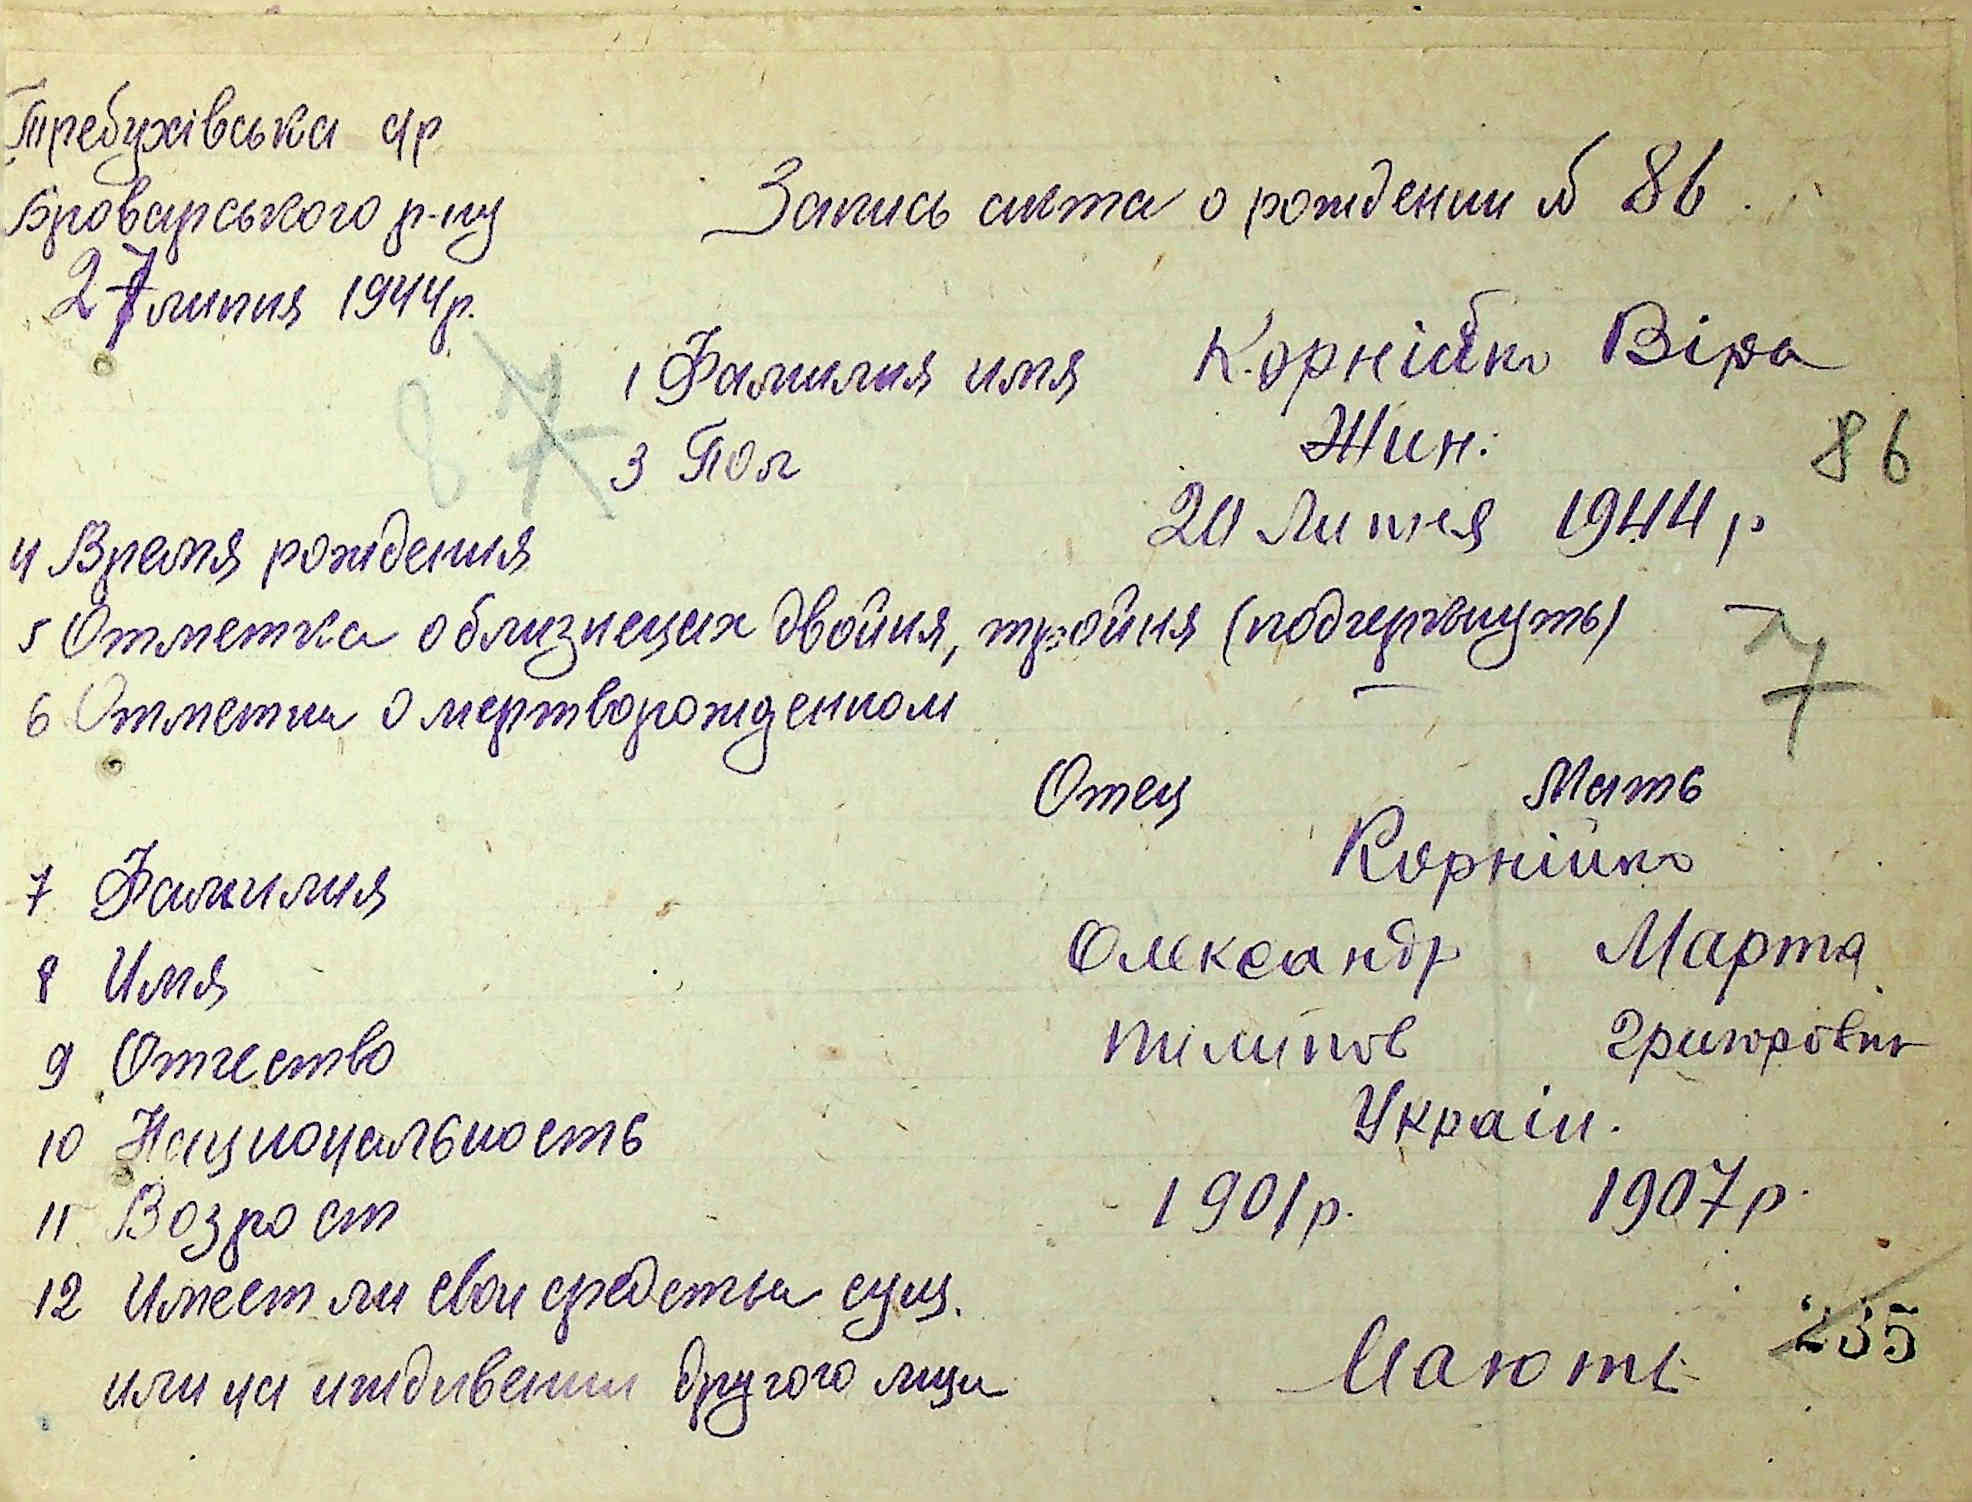 Требухівська с/р
Броварського р-ну
27 липня 1944 р.
Запись акта о рождении № 86.
87
1 Фамилия имя Корнійко Віра
3 Пол Жин.
86
4 Время рождения 20 Липня 1944 р
5 Отметка о близнецах двойня, тройня (подчеркнуть)
6 Отметка о мертворожденном —
7
Отец Мать
7 Фамилия Корнійко
8 Имя Олександр Марта
9 Отчество Пилипов Григоровн
10 Национальность Україн.
11 Возраст 1901 р. 1907 р.
12 Имеет ли свои средства сущ.
или на иждивении другого лица Мають
235